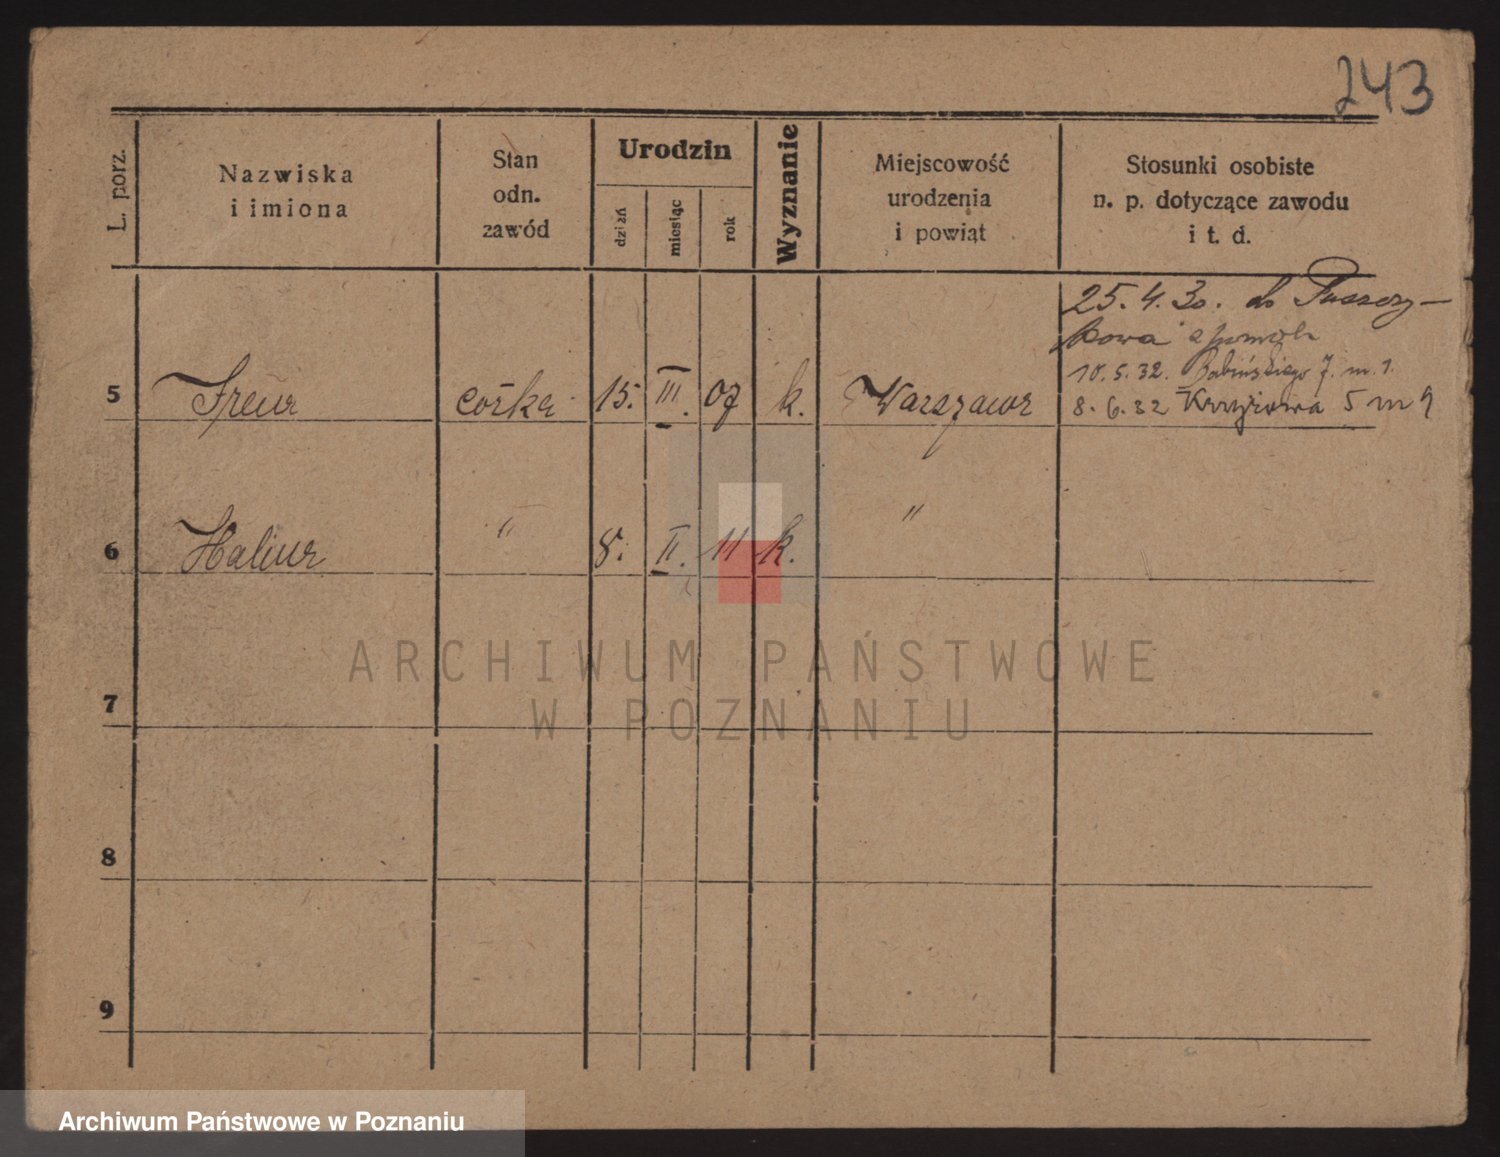 243
L. porz.
Nazwiska
i imiona
Stan
odn.
zawód
Urodzin
dzień
miesiąc
rok
Wyznanie
Miejscowość
urodzenia
i powiat
Stosunki osobiste
n. p. dotyczące zawodu
i t. d.
25.4.30. do Puszczy-
kowa
10.5.32. Babińskiego 7. m. 1.
5 Irena córka 15. III. 07 k. Warszawa 8.6.32 Krzyżowa 5 m 9
6 Halina " 8. II. 11 k. "
7
8
9
ARCHIWUM PAŃSTWOWE
W POZNANIU
Archiwum Państwowe w Poznaniu